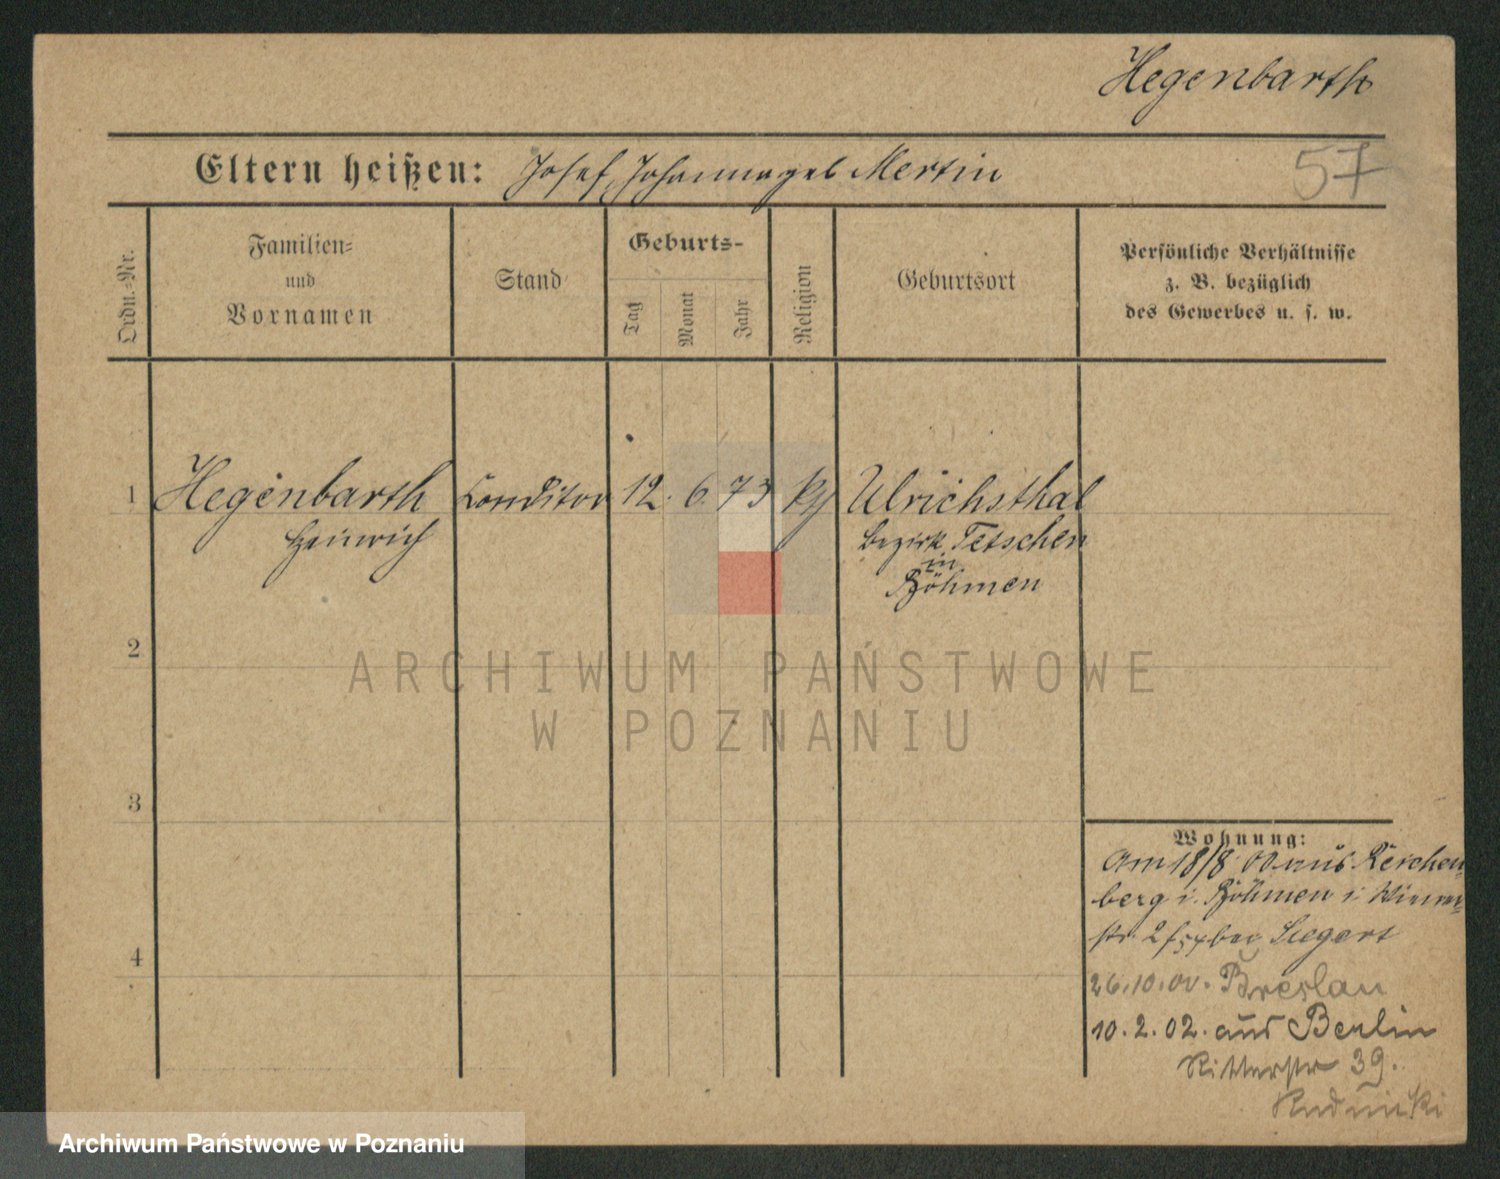 Hegenbarth
Eltern heißen: Josef, Johanna geb Mertin
57
Ordn.-Nr.
Familien-
und
Vornamen
Stand
Geburts-
Tag
Monat
Jahr
Religion
Geburtsort
Persönliche Verhältnisse
z. B. bezüglich
des Gewerbes u. s. w.
1 Hegenbarth Conditor 12. 6. 73 Ulrichsthal
Heinrich bezirk Tetschen
in
Böhmen
2
ARCHIWUM PAŃSTWOWE
W POZNANIU
3
4
Wohnung:
Am 18/8 00 aus Reichen-
berg i. Böhmen i.
str. 2 bei Siegert
26.10.00. Breslau
10.2.02. aus Berlin
Ritterstr 39.
Archiwum Państwowe w Poznaniu